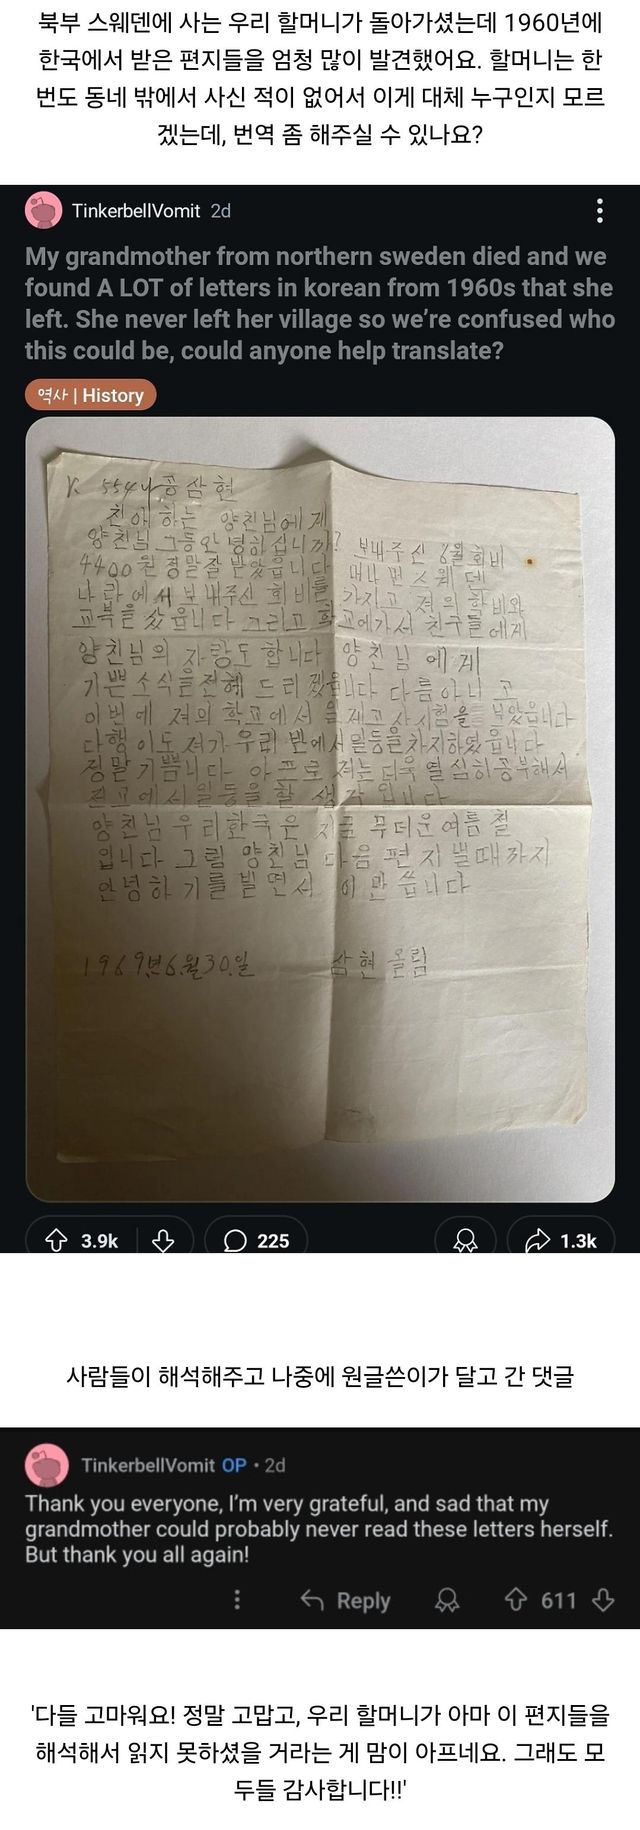 북부 스웨덴에 사는 우리 할머니가 돌아가셨는데 1960년에
한국에서 받은 편지들을 엄청 많이 발견했어요. 할머니는 한
번도 동네 밖에서 사신 적이 없어서 이게 대체 누구인지 모르
겠는데, 번역 좀 해주실 수 있나요?
TinkerbellVomit 2d
My grandmother from northern sweden died and we
found A LOT of letters in korean from 1960s that she
left. She never left her village so we're confused who
this could be, could anyone help translate?
역사 | History
삼현
친애하는 양친님에게
양친님 그동안 녕하십니까? 보내주신 6월 회비
4400원 정말 잘 받았읍니다 머나먼 스웨덴
나라에서 보내주신 회비를 가지고 저의 학비와
교복을 샀읍니다 그리고 학교에가서 친구들에게
양친님의 자랑도 합니다 양친님에게
기쁜소식을전해 드리겠읍니다 다름아니고
이번에 저의 학교에서 일제고사시험을 보았읍니다
다행이도 저가 우리 반에서일등을차지하였읍니다
정말기쁩니다 아프로 저는 더욱 열심히공부해서
전교에서일등을 할 생각입니다
양친님 우리한국은 지금 무더운여름철
입니다 그럼 양친님 다음 편지낼때까지
안녕하기를 빌면서 이만 씁니다
1969년6월30일 삼현 올림
3.9k 225 1.3k
사람들이 해석해주고 나중에 원글쓴이가 달고 간 댓글
TinkerbellVomit OP • 2d
Thank you everyone, I'm very grateful, and sad that my
grandmother could probably never read these letters herself.
But thank you all again!
Reply 611
'다들 고마워요! 정말 고맙고, 우리 할머니가 아마 이 편지들을
해석해서 읽지 못하셨을 거라는 게 맘이 아프네요. 그래도 모
두들 감사합니다!!'